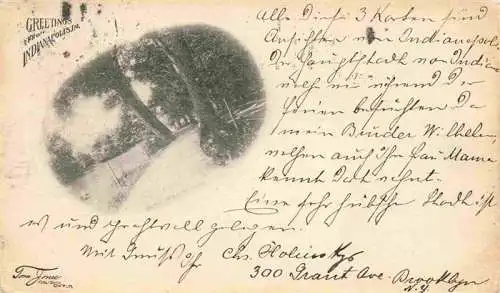 GREETINGS
FROM
INDIANAPOLIS, IN.
Alle Diese 3 Karten sind
Ansichten von Indianapolis
Der Hauptstadt von Indi-
welche wir während der
Ferien besuchten Da
mein Bruder Wilhelm,
welchen auch Ihr Frau Mama
kennt Dort wohnt.
Eine sehr hübsche Stadt ist
es und prachtvoll gelegen.
Mit Gruß Ihr Chs.
300 Grant Ave. Brooklyn
N.Y.